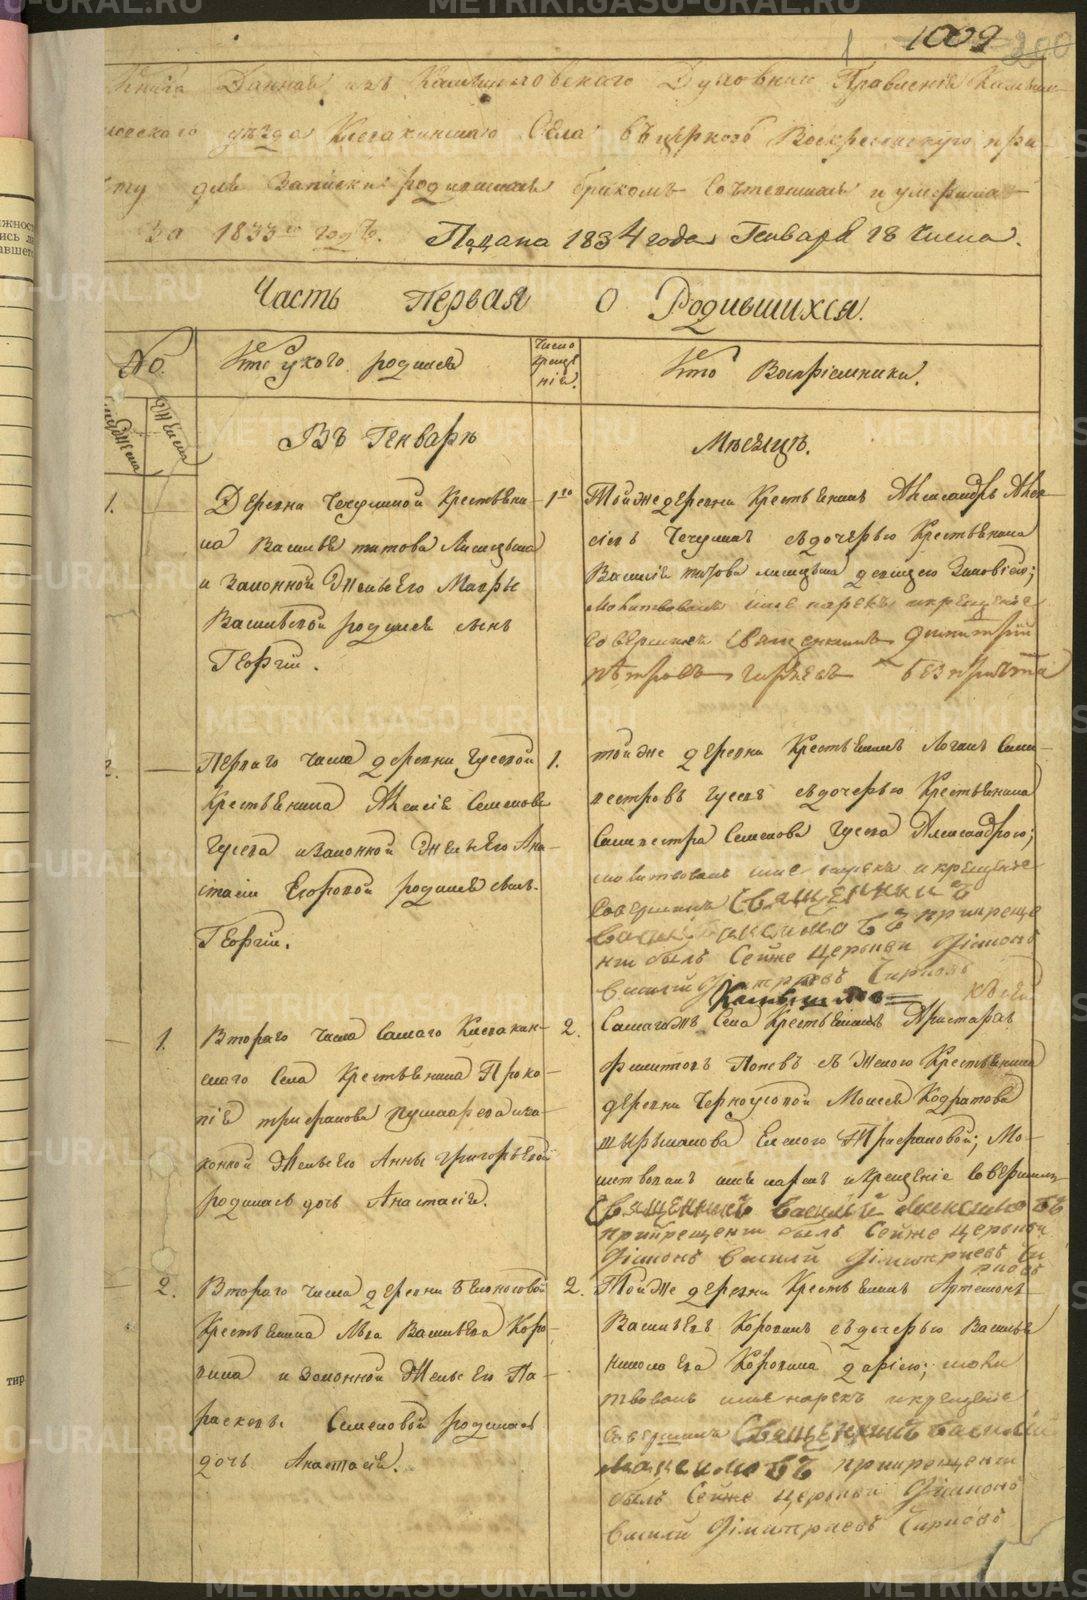 1009
200
Книга Данная изъ Камышловскаго Духовнаго Правленія Камыш-
ловскаго уѣзда Клевакинскаго Села въ церковь Воскресенскую при-
ту для Записки родившихся бракомъ Сочтавшихся и умершихъ
За 1833й годъ. Подана 1834 года Генваря 18 числа.
Часть Первая О Родившихся.
No.
Кто у кого родился
Число крещенія.
Кто Воспріемники.
Въ Генварѣ
Мѣсяцѣ.
1.
Деревни Чечулиной Крестьяни-
на Василья Титова Лисицына
и Законной Жены Его Марфы
Васильевой родился сынъ
Георгій.
1го
Той же деревни Крестьянинъ Александръ Алек-
сіевъ Чечулинъ съ дочерью Крестьянина
Василія Титова Лисицына девицею Зиновіею;
Молитвовалъ имя нарекъ и крещеніе
совершилъ Священникъ Димитрій
Петровъ без причта
2.
Перваго числа деревни Гусевой
Крестьянина Алексія Семенова
Гусева и Законной Жены Его Ана-
стасіи Егоровой родился сынъ
Георгій.
1.
той же деревни Крестьянинъ Логинъ Сили-
вестровъ Гусевъ съ дочерью Крестьянина
Силивестра Семенова Гусева Александрою;
молитвовалъ имя нарекъ и крещеніе
Совершилъ Священникъ
Василій Максимовъ при креще
ніи былъ Сей же церкви Діяконъ
Василій Димитріевъ
1.
Втораго числа Самаго Клевакин-
скаго Села Крестьянина Проко-
пія Трифанова и за-
конной Жены Его Анны Григорьевой
родилась дочь Анастасія.
2.
Самаго жъ Села Крестьянинъ Аристархъ
Филиповъ Поповъ съ Женою Крестьянина
деревни Черноусовой Моисея Кодратова
Еленою Трифановой; Мо-
литвовалъ имя нарекъ и крещеніе Совершилъ
Священникъ Василій Максимовъ
при крещеніи былъ Сей же церкви
Діяконъ Василій Димитріевъ
2.
Втораго числа деревни Белоносовой
Крестьянина Льва Васильева Коро-
вина и Законной Жены Его Па-
расковьи Семеновой родилась
дочь Анастасія.
2.
Той же деревни Крестьянинъ Артемонъ
Васильевъ Коровинъ съ дочерью Василья
Коровина Даріею; моли
твовалъ имя нарекъ и крещеніе
Совершилъ Священникъ Василій
Максимовъ при крещеніи
былъ Сей же церкви Діяконъ
Василій Димитріевъ
METRIKI.GASO-URAL.RU